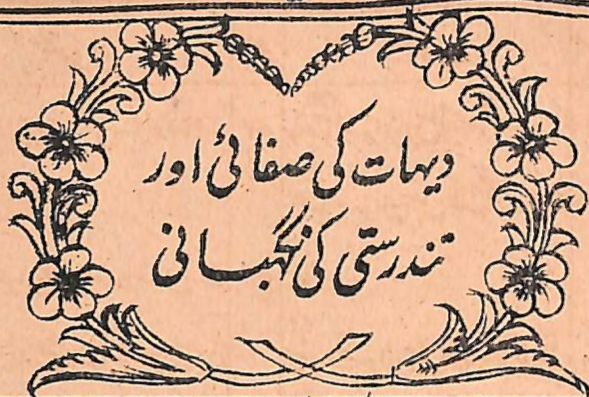 دیہات کی صفائی اور
تندرستی کی نگہبانی